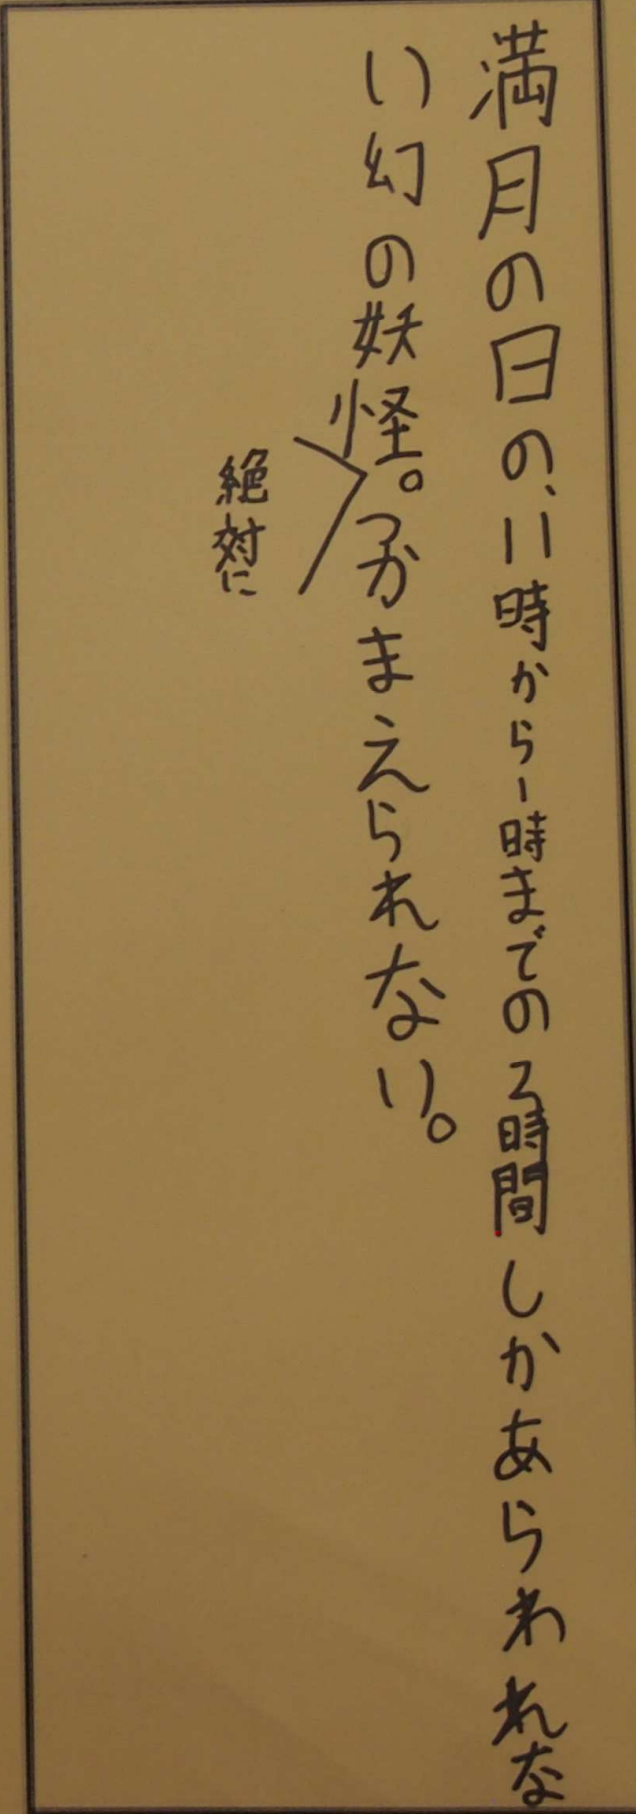 満月の日の、11時から1時までの2時間しかあらわれな
い幻の妖怪。つかまえられない。
絶対に